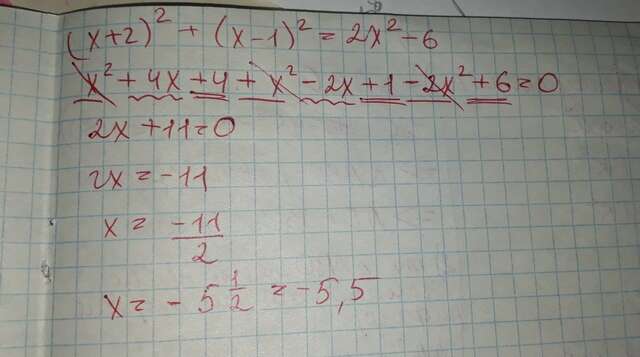 (x+2)² + (x-1)² = 2x² - 6
x² + 4x + 4 + x² - 2x + 1 - 2x² + 6 = 0
2x + 11 = 0
2x = -11
x = -11/2
x = -5 1/2 = -5,5